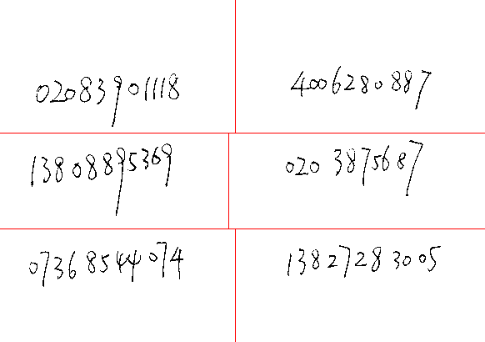 02083901118
4006280887
13808895369
020 3875687
07368544074
13827283005